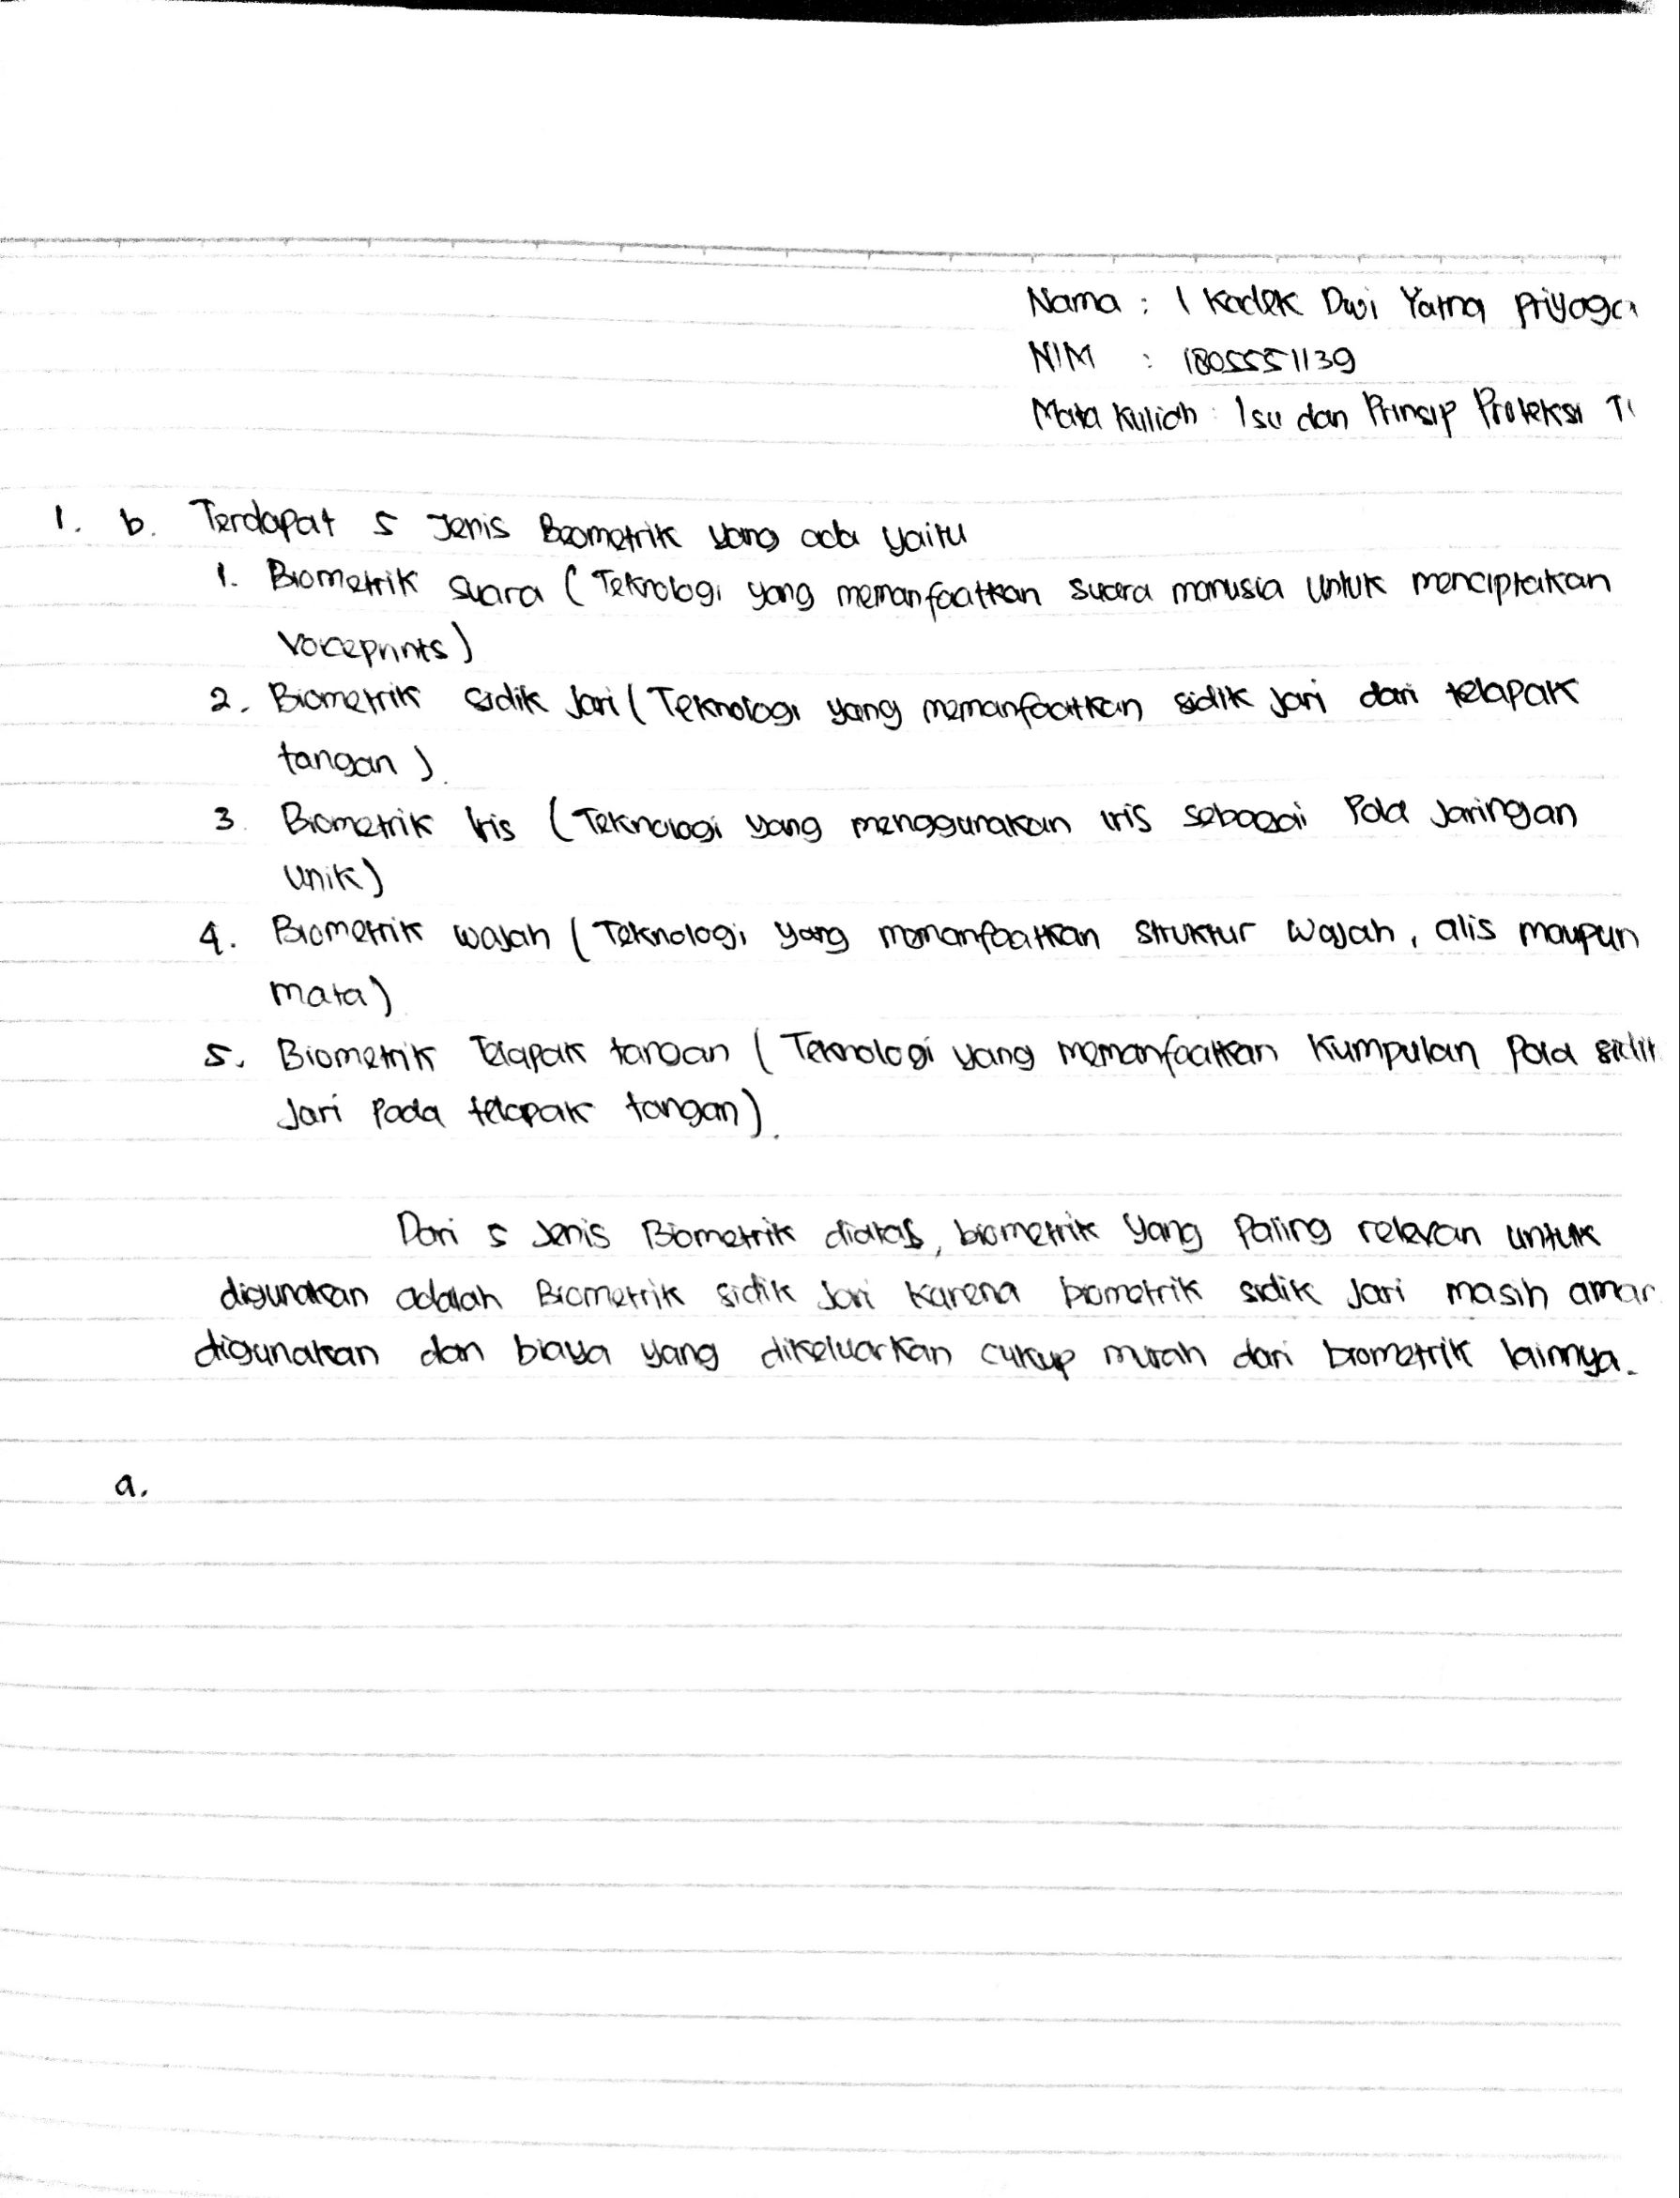 Nama : I Kadek Dwi Yatna Priyoga
NIM : 1805551139
Mata Kuliah : Isu dan Prinsip Proteksi TI
1. b. Terdapat 5 Jenis Beometrik yang ada yaitu
1. Biometrik suara (Teknologi yang memanfaatkan suara manusia untuk menciptakan
Voiceprints)
2. Biometrik sidik Jari (Teknologi yang memanfaatkan sidik jari dari telapak
tangan).
3. Biometrik Iris (Teknologi yang menggunakan iris sebagai Pola Jaringan
Unik)
4. Biometrik wajah (Teknologi yang memanfaatkan struktur wajah, alis maupun
mata)
5. Biometrik Telapak tangan (Teknologi yang memanfaatkan Kumpulan Pola sidik
Jari Pada telapak tangan).
Dari 5 Jenis Biometrik diatas, biometrik yang Paling relevan untuk
digunakan adalah Biometrik sidik Jari Karena biometrik sidik Jari masih aman
digunakan dan biaya yang dikeluarkan cukup murah dari biometrik lainnya.
a.